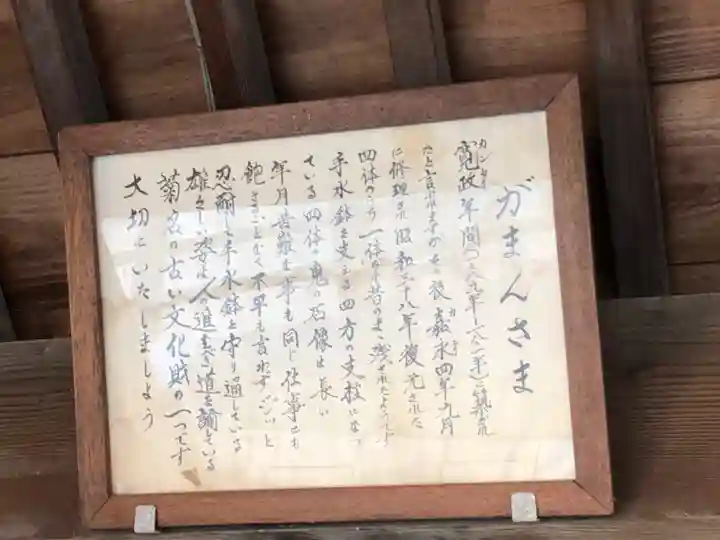 がまんさま
寛政年間(一七八九年〜一八〇一年)に築かれ
たと言われますがその後嘉永四年九月
に修理され昭和三十八年復元された
四体のうち一体は昔のまゝ残されたようです
手水鉢を支える四方の支柱になっ
ている四体の鬼の石像は長い
年月苦難な事も同じ仕事にも
飽きることなく不平も言わずじいっと
忍耐し手水鉢を守り通している
雄々しい姿は人の進むべき道を諭している
菊名の古い文化財の一つです
大切にいたしましょう